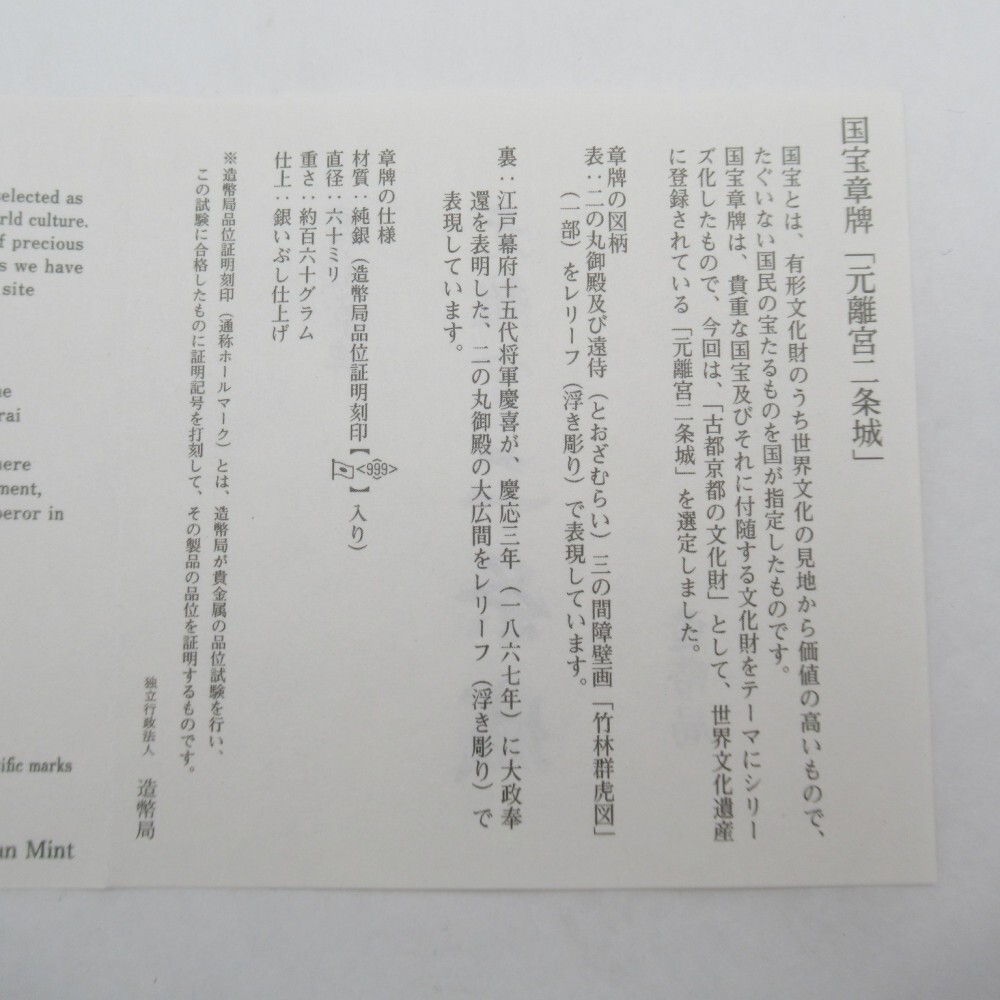 国宝章牌「元離宮二条城」
国宝とは、有形文化財のうち世界文化の見地から価値の高いもので、
たぐいない国民の宝たるものを国が指定したものです。
国宝章牌は、貴重な国宝及びそれに付随する文化財をテーマにシリー
ズ化したもので、今回は、「古都京都の文化財」として、世界文化遺産
に登録されている「元離宮二条城」を選定しました。
章牌の図柄
表：二の丸御殿及び遠侍（とおざむらい）三の間障壁画「竹林群虎図」
（一部）をレリーフ（浮き彫り）で表現しています。
裏：江戸幕府十五代将軍慶喜が、慶応三年（一八六七年）に大政奉
還を表明した、二の丸御殿の大広間をレリーフ（浮き彫り）で
表現しています。
章牌の仕様
材質：純銀（造幣局品位証明刻印【<999>】入り）
直径：六十ミリ
重さ：約百六十グラム
仕上：銀いぶし仕上げ
※造幣局品位証明刻印（通称ホールマーク）とは、造幣局が貴金属の品位試験を行い、
この試験に合格したものに証明記号を打刻して、その製品の品位を証明するものです。
独立行政法人 造幣局
selected as
rld culture.
f precious
s we have
site
e
rai
here
ment,
peror in
ific marks
an Mint